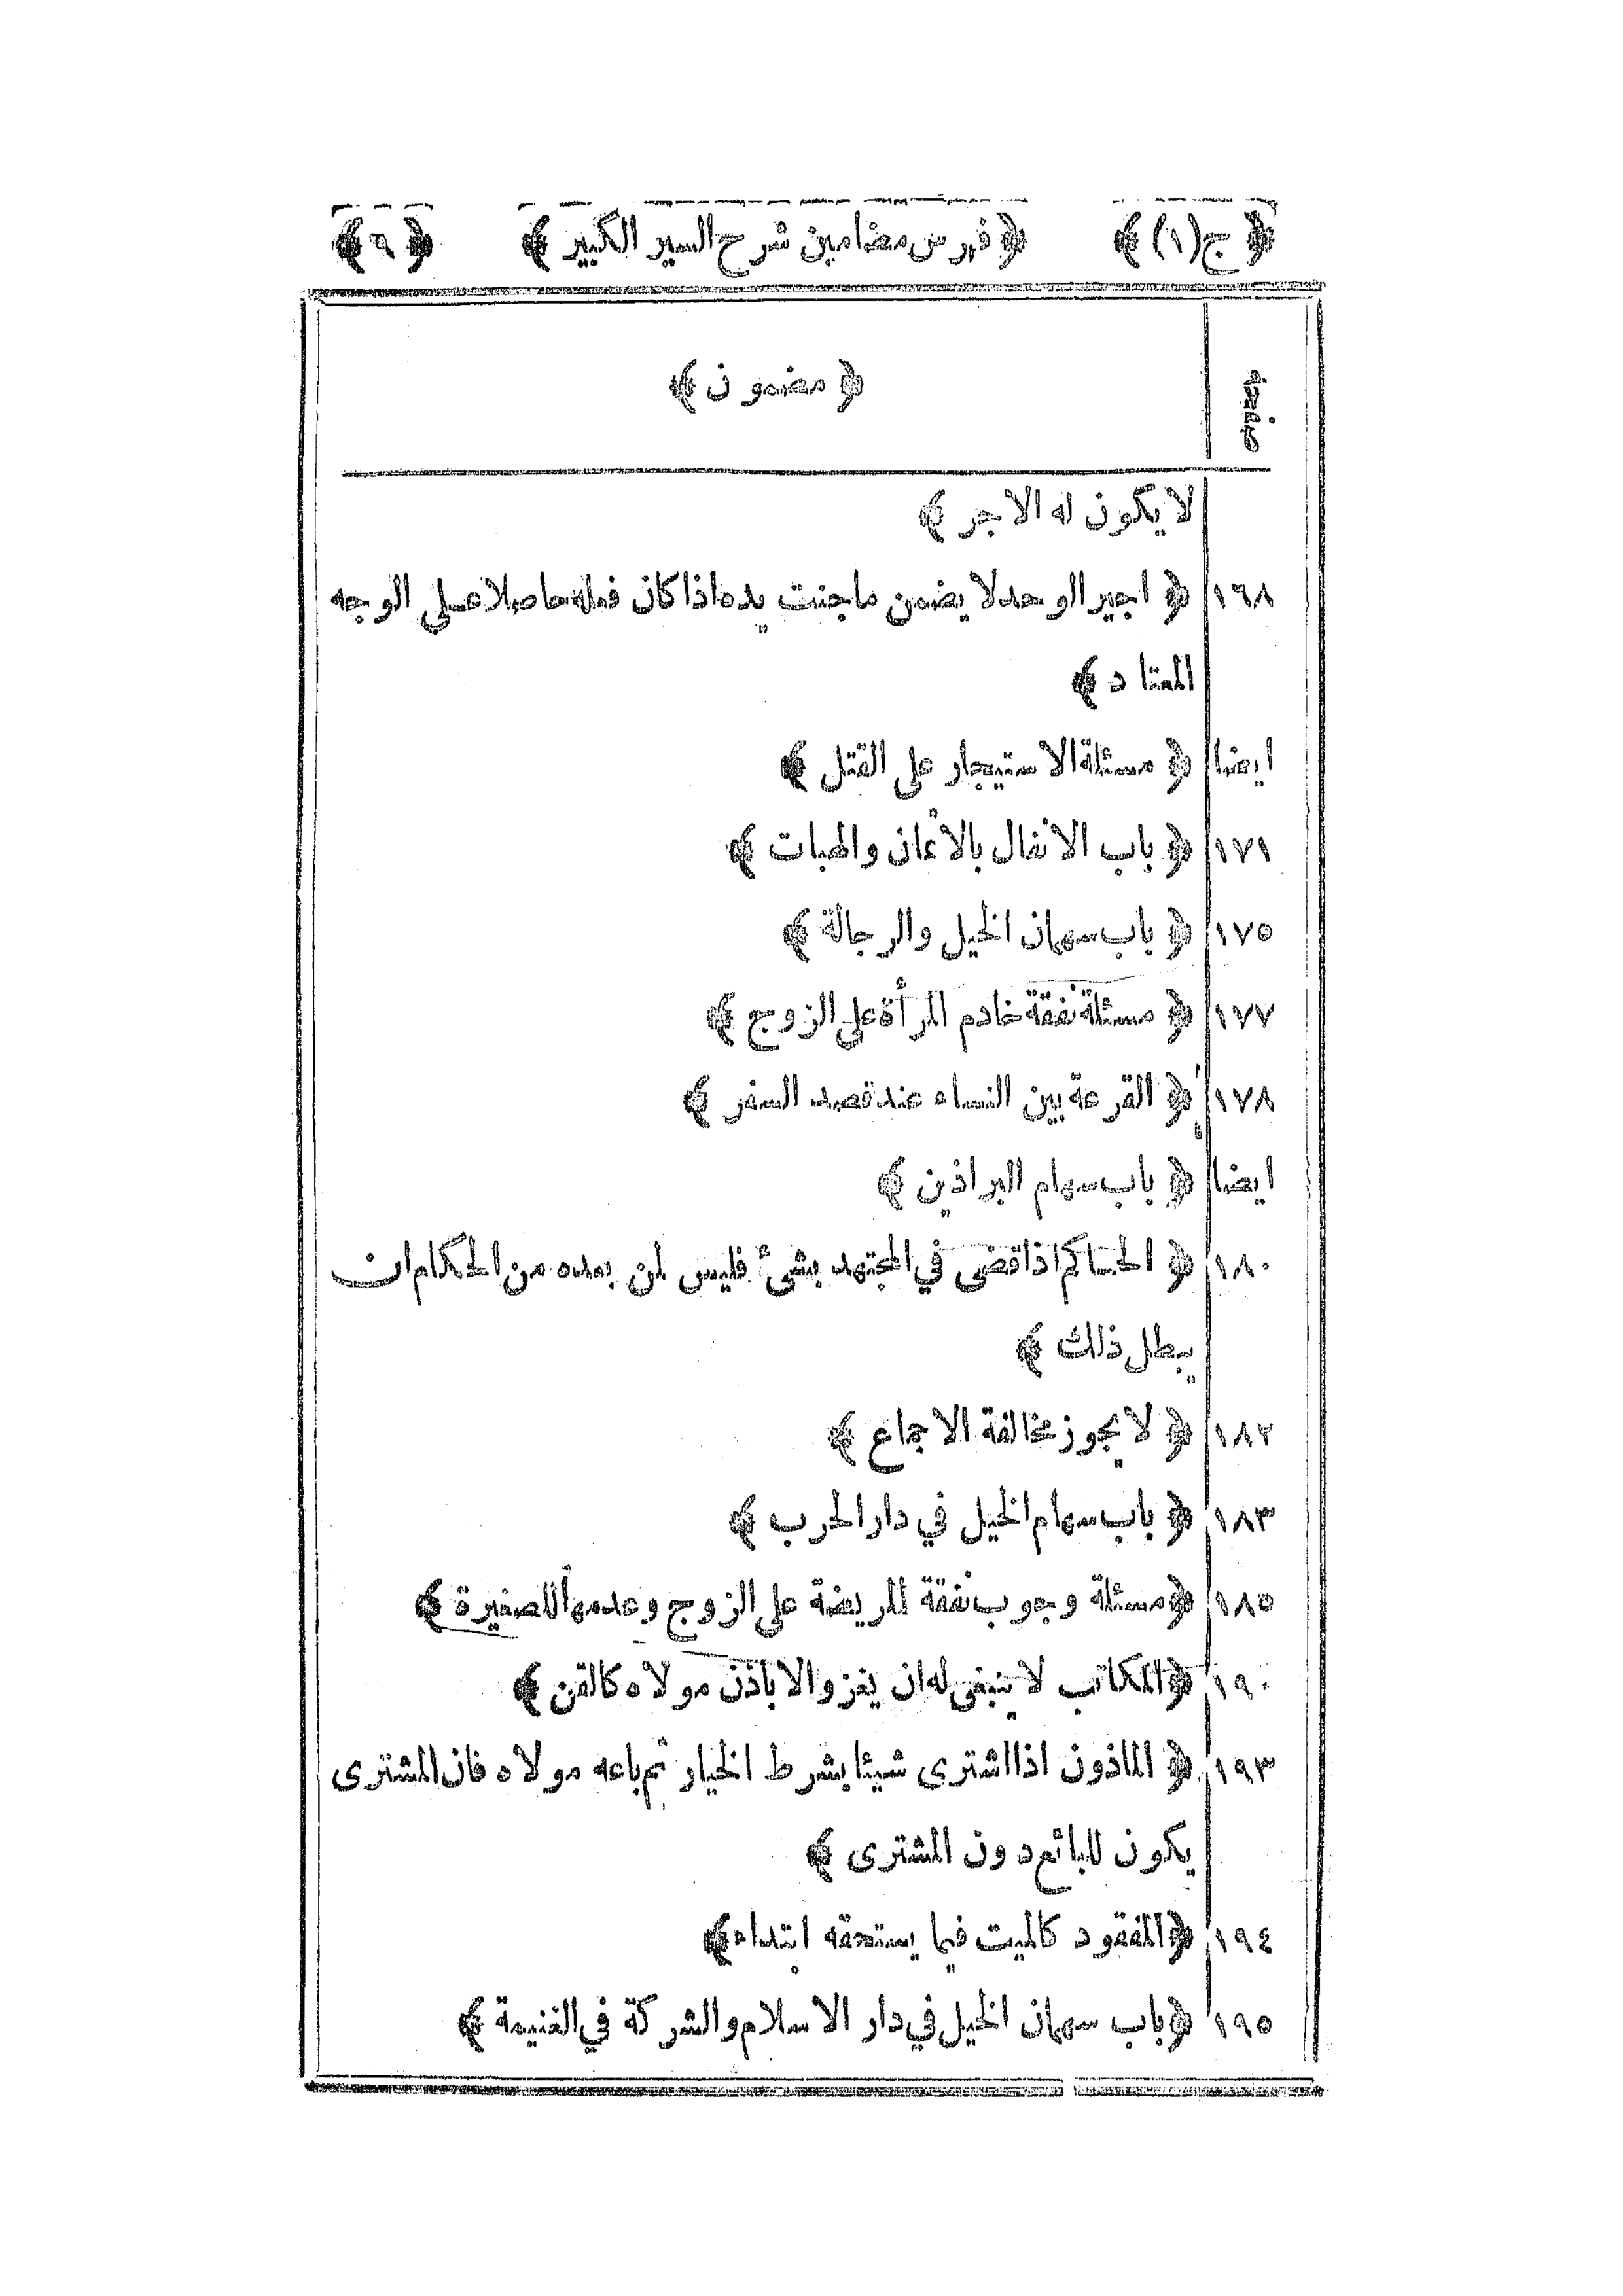 ﴿ ج(١) ﴾ ﴿ فهرس مضامين شرح السير الكبير ﴾ ﴿ ٩ ﴾
صفحه ﴿ مضمون ﴾
لا يكون له الاجر ﴾
١٦٨ ﴿ اجير الوحد لا يضمن ما جنت يده اذا كان فعله حاصلا على الوجه
المعتاد ﴾
ايضا ﴿ مسئلة الاستيجار على القتل ﴾
١٧١ ﴿ باب الانفال بالأثمان والهبات ﴾
١٧٥ ﴿ باب سهمان الخيل والرجالة ﴾
١٧٧ ﴿ مسئلة نفقة خادم المرأة على الزوج ﴾
١٧٨ ﴿ القرعة بين النساء عند قصد السفر ﴾
ايضا ﴿ باب سهام البراذين ﴾
١٨٠ ﴿ الحاكم اذا قضى في المجتهد بشئ فليس لمن بعده من الحكام ان
يبطل ذلك ﴾
١٨٢ ﴿ لا يجوز مخالفة الاجماع ﴾
١٨٣ ﴿ باب سهام الخيل في دار الحرب ﴾
١٨٥ ﴿ مسئلة وجوب نفقة المريضة على الزوج وعدمها للصغيرة ﴾
١٩٠ ﴿ المكاتب لا ينبغى له ان يغزو الا باذن مولاه كالقن ﴾
١٩٣ ﴿ الماذون اذا اشترى شيئا بشرط الخيار ثم باعه مولاه فان المشترى
يكون للبائع دون المشترى ﴾
١٩٤ ﴿ المفقود كالميت فيما يستحقه ابتداء ﴾
١٩٥ ﴿ باب سهمان الخيل في دار الاسلام والشركة في الغنيمة ﴾